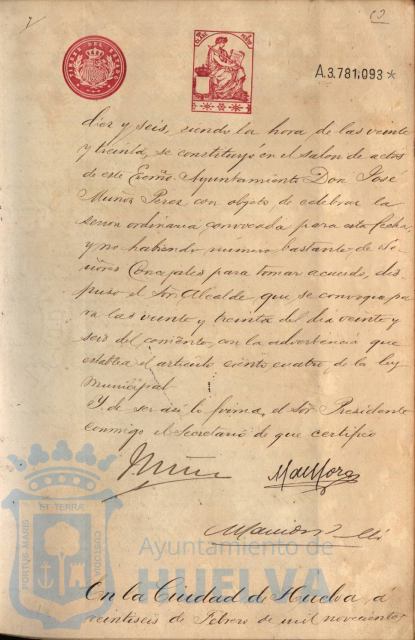 TIMBRE DEL ESTADO
A.3.781,093 *
diez y seis, siendo la hora de las veinte
y treinta, se constituyó en el salon de actos
de este Excmo. Ayuntamiento Don José
Muñoz Perez con objeto de celebrar la
sesion ordinaria convocada para esta fecha,
y no habiendo numero bastante de Se-
ñores Concejales para tomar acuerdo, dis-
puso el Sor. Alcalde que se convoque pa
ra las veinte y treinta del dia veinte y
seis del corriente, con la advertencia que
establece el articulo ciento cuatro de la ley
Municipal
Y de ser asi lo firma, el Sor. Presidente
conmigo el Secretario de que certifico
PORTUS MARIS ET TERRAE CUSTODIA
Ayuntamiento de
HUELVA
En la Ciudad de Huelva á
veintiseis de Febrero de mil novecientos